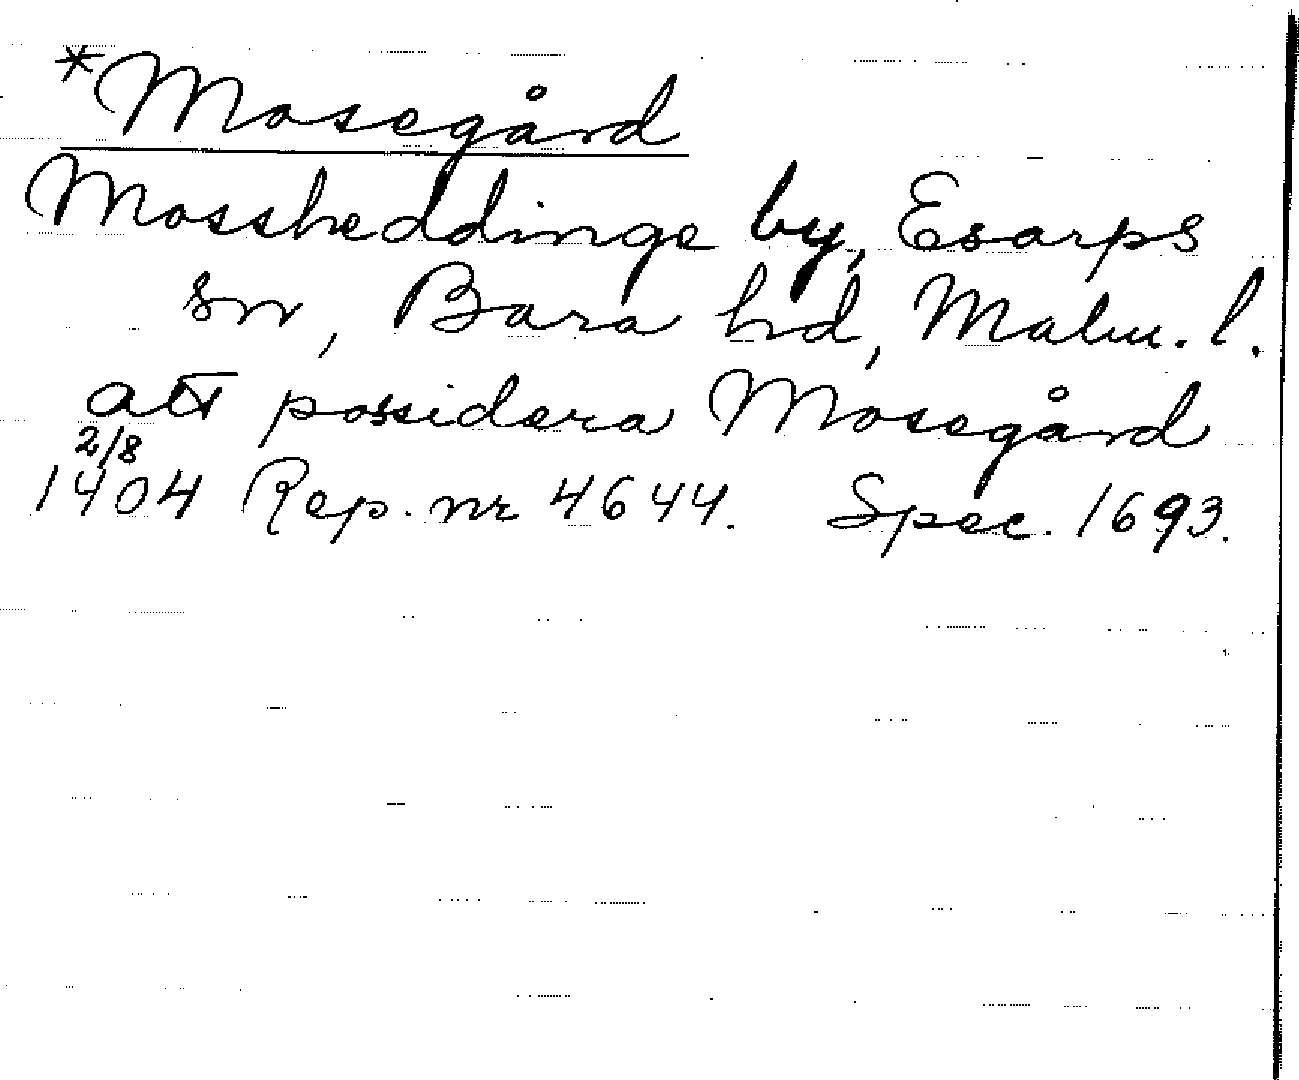 *Mosegård
Mossheddinge by, Esarps
sn, Bara hd, Malm. l.
att possidera Mosegård
2/8
1404 Rep. nr 4644. Spec. 1693.